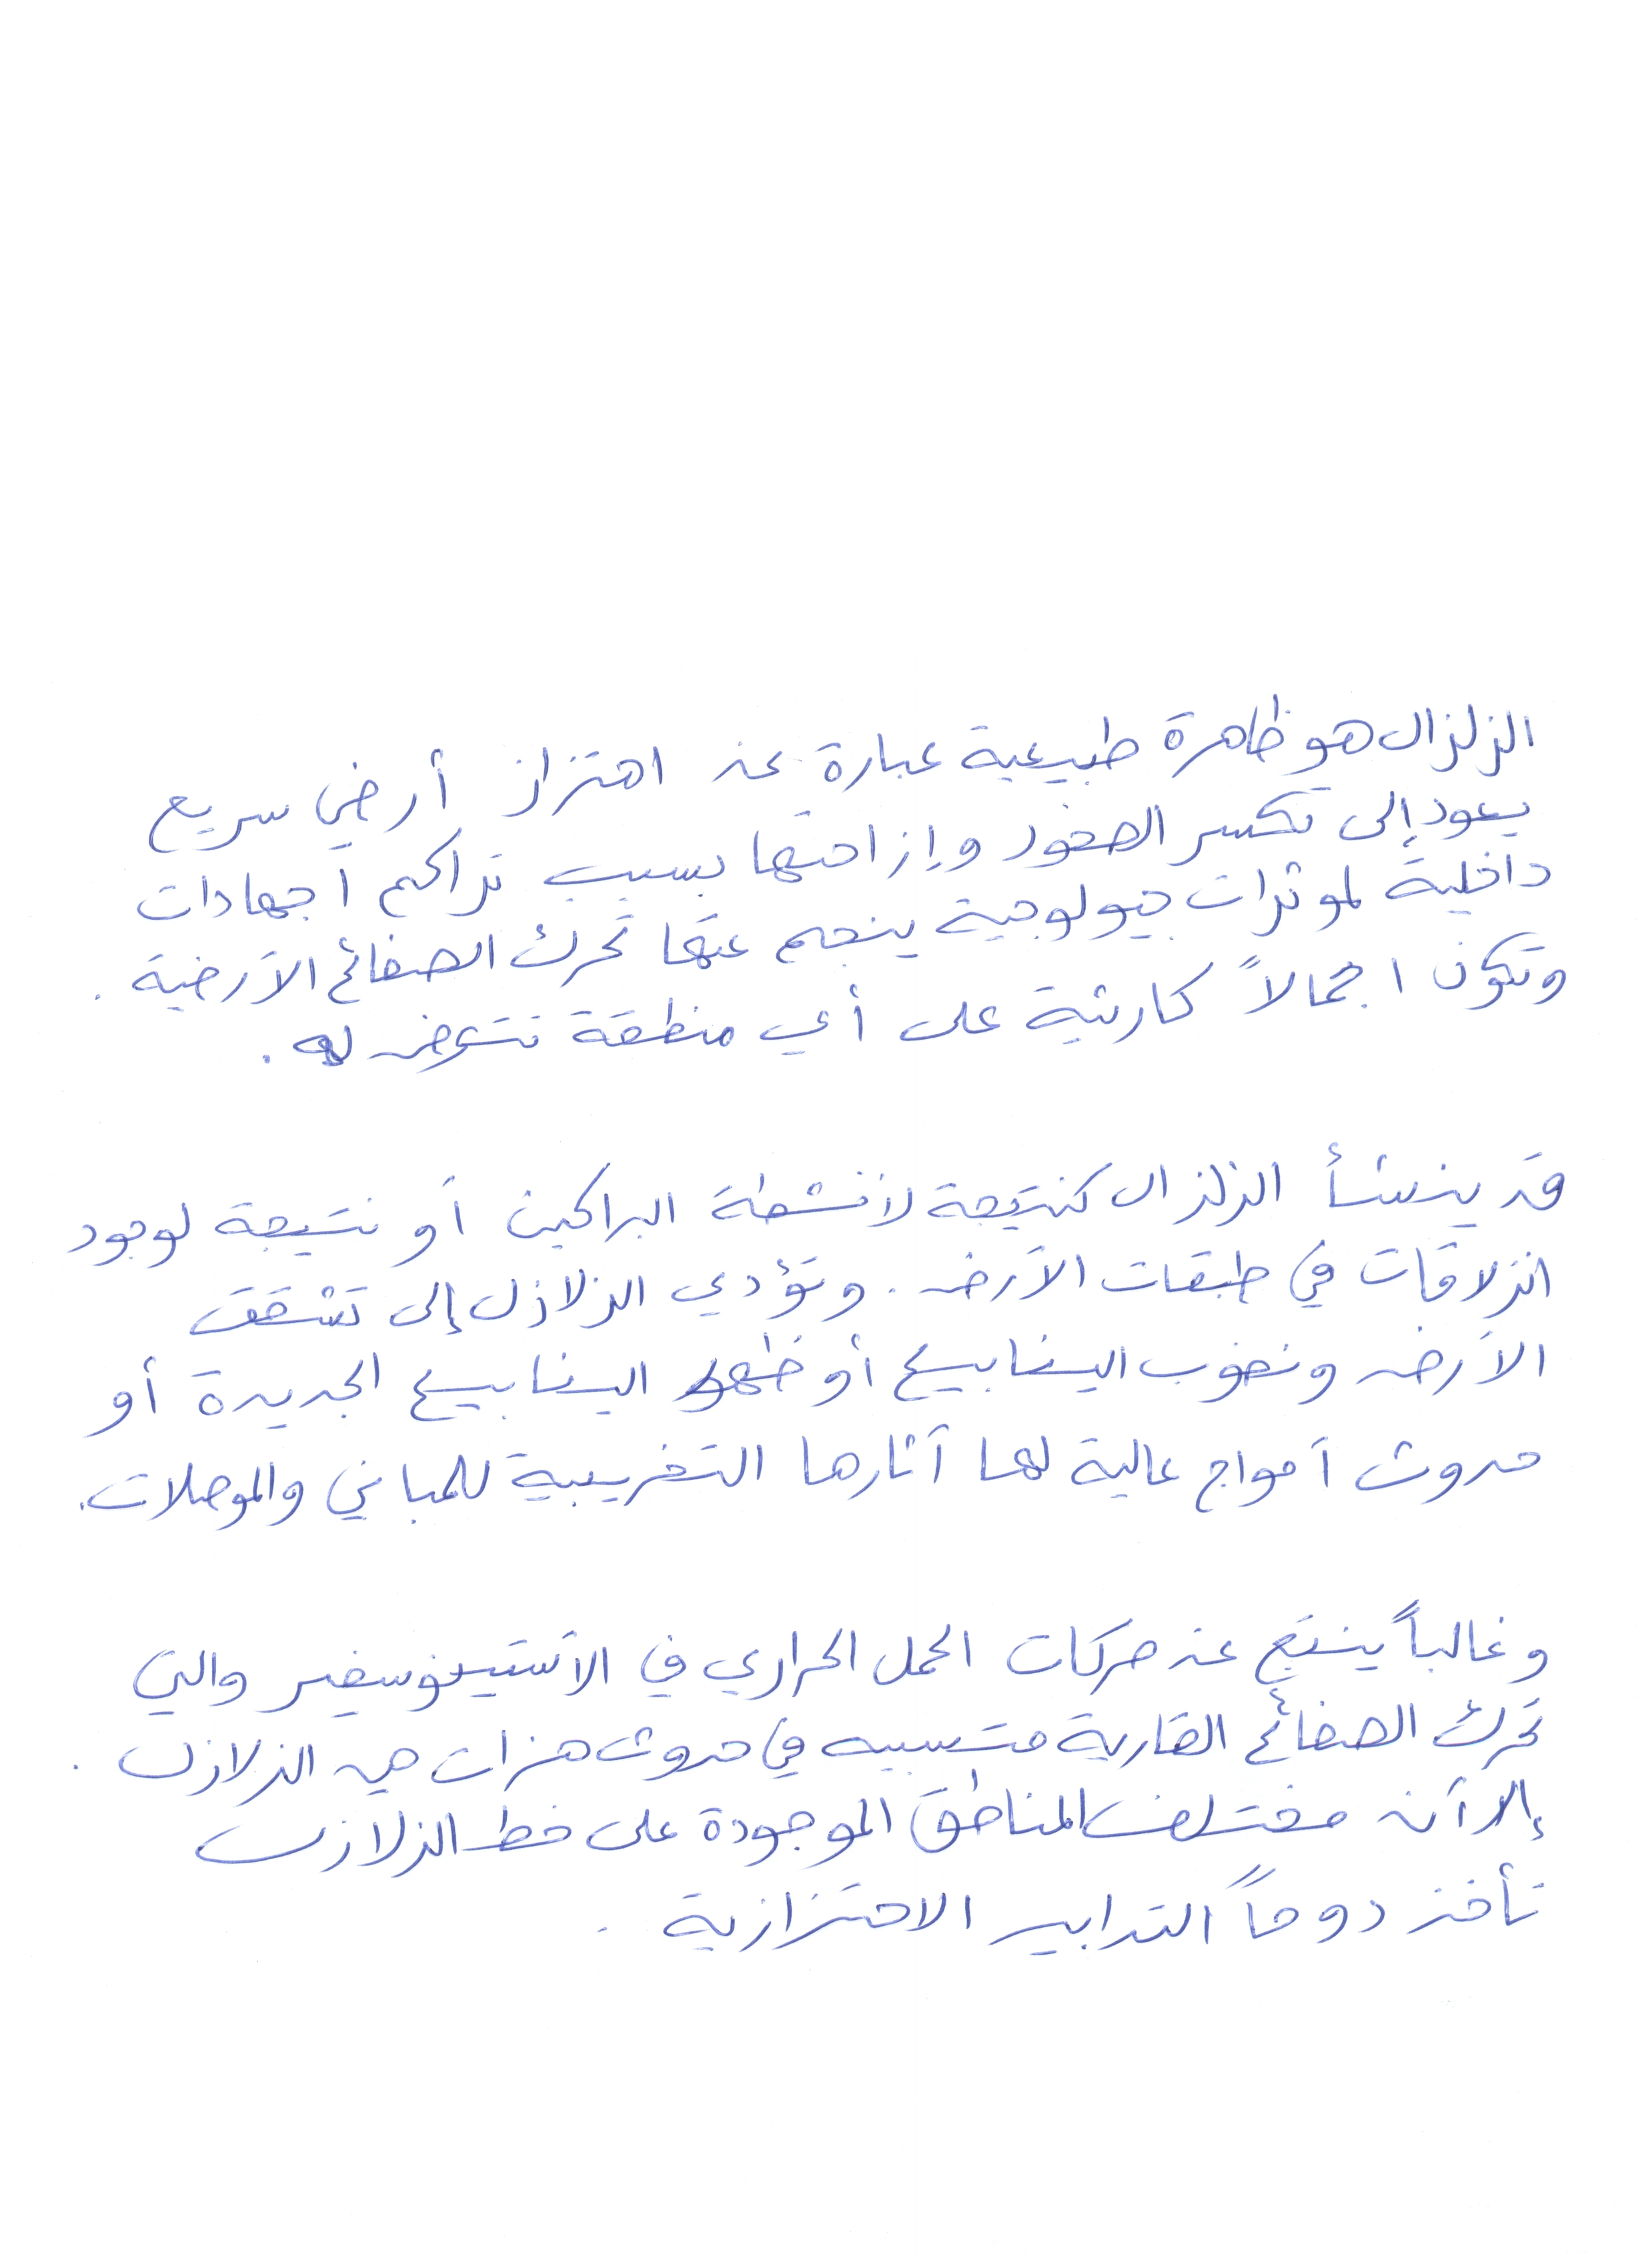 الزلزال هو ظاهرة طبيعية عبارة عن اهتزاز أرضي سريع
يعود إلى تكسر الصخور وإزاحتها بسبب تراكم اجهادات
داخلية لمؤثرات جيولوجية ينجم عنها تحرك الصفائح الأرضية .
وتكون اجمالاً كارثية على أي منطقة تتعرض له .
قد ينشأ الزلزال كنتيجة لأنشطة البراكين أو نتيجة لوجود
انزلاقات في طبقات الأرض . وتؤدي الزلازل إلى تشقق
الأرض ونضوب الينابيع أو ظهور الينابيع الجديدة أو
حدوث أمواج عالية لها آثارها التخريبية للمباني والموصلات .
وغالباً ينتج عن حركات الحمل الحراري في الأستينوسفير والتي
تحرك الصفائح القارية متسببه في حدوث هزات هي الزلازل .
إلا أن مختلف المناطق الموجودة على خط الزلازل
تأخذ دوماً التدابير الاحترازية .